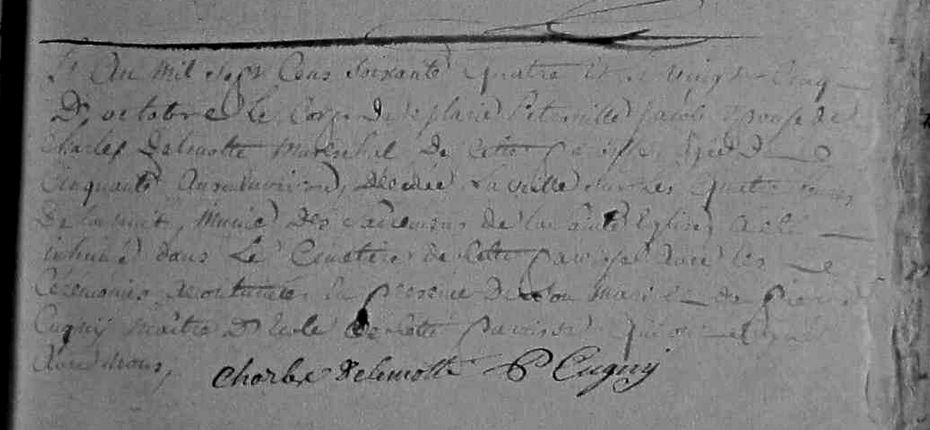 L'An mil Sept Cens Soixante Quatre et le vingt Cinq
D'octobre Le Corps De Jacob Epouse de
Charles Delemotte Mareschal De Cette paroisse Agée De
Cinquante Ans environ, Décédée La veille sur les quatre
De la nuit, Munie Des sacremens de la Ste Eglise, A été
inhumé dans Le Cimetiere de Cette paroisse avec les
Cérémonies accoutumées En presence De Son Mari et de pierre
Cugny Maître D'Ecole De Cette paroisse qui ont signé
Avec nous,
Charles Delemotte P Cugny